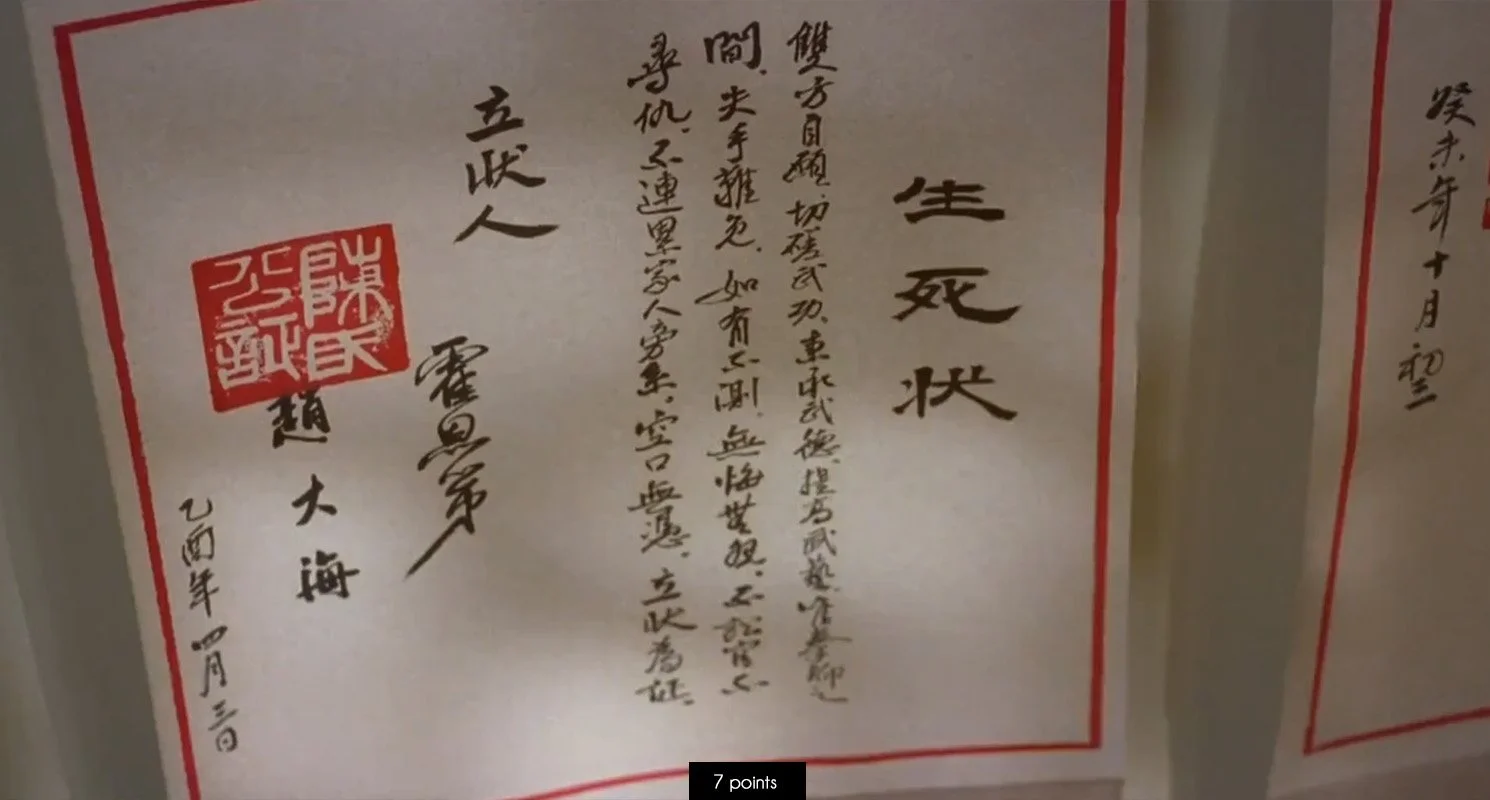 癸未年十月初
生死状
雙方自願、切磋武功、秉承武德、提高武藝、唯拳腳之
間、失手難免、如有不測、無悔無怨、不訟官不
尋仇、不連累家人旁系、空口無憑、立状為証、
立状人
霍恩第
趙大海
陳氏公証
乙酉年四月三日
7 points